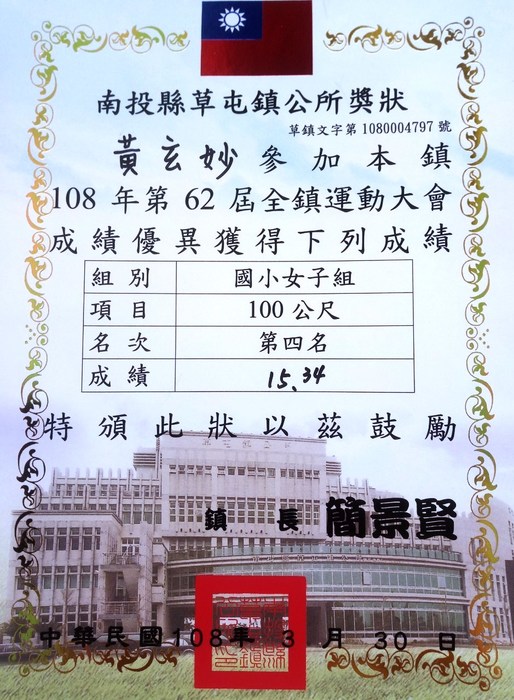 南投縣草屯鎮公所獎狀
草鎮文字第 1080004797 號
黃玄妙參加本鎮
108 年第 62 屆全鎮運動大會
成績優異獲得下列成績
組別 國小女子組
項目 100 公尺
名次 第四名
成績 15.34
特頒此狀以茲鼓勵
鎮長 簡景賢
中華民國 108 年 3 月 30 日